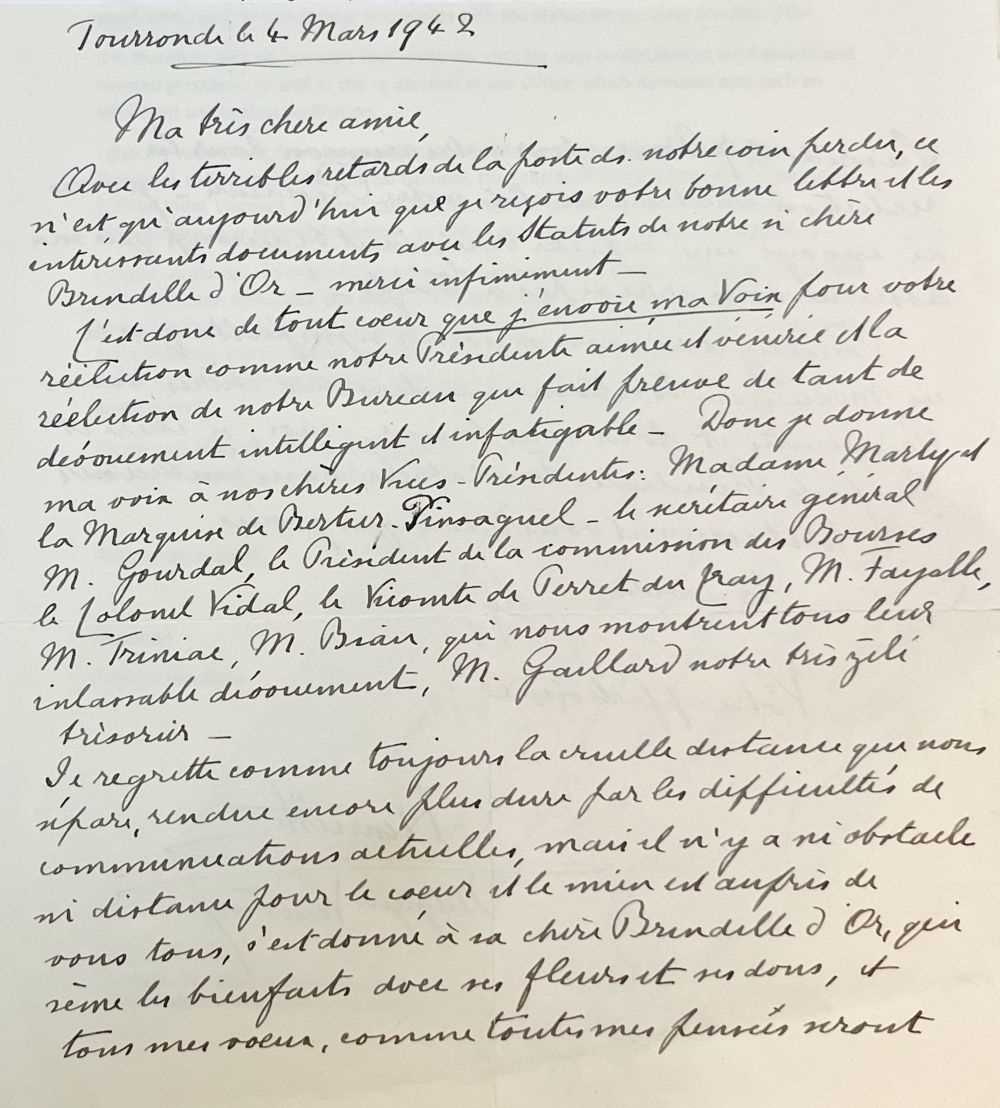 Tourronde le 4 Mars 1942
Ma très chère amie,
Avec les terribles retards de la poste ds. notre coin perdu, ce
n'est qu'aujourd'hui que je reçois votre bonne lettre et les
intéressants documents avec les Statuts de notre si chère
Brindille d'Or – merci infiniment –
C'est donc de tout coeur que j'envoie ma Voix pour votre
réélection comme notre Présidente aimée et vénérée et la
réélection de notre Bureau qui fait preuve de tant de
dévouement intelligent et infatigable – Donc je donne
ma voix à nos chères Vices-Présidentes: Madame Marty et
la Marquise de Bertier-Pinsaguel – le secrétaire général
M. Gourdal, le Président de la commission des Bourses
le Colonel Vidal, le Vicomte de Perret du Cray, M. Fayolle,
M. Triniac, M. Biau, qui nous montrent tous leur
inlassable dévouement, M. Gaillard notre très zélé
trésorier –
Je regrette comme toujours la cruelle distance qui nous
sépare, rendue encore plus dure par les difficultés de
communications actuelles, mais il n'y a ni obstacle
ni distance pour le coeur et le mien est auprès de
vous tous, s'est donné à sa chère Brindille d'Or, qui
sème les bienfaits avec ses fleurs et ses dons, et
tous mes voeux, comme toutes mes pensées seront